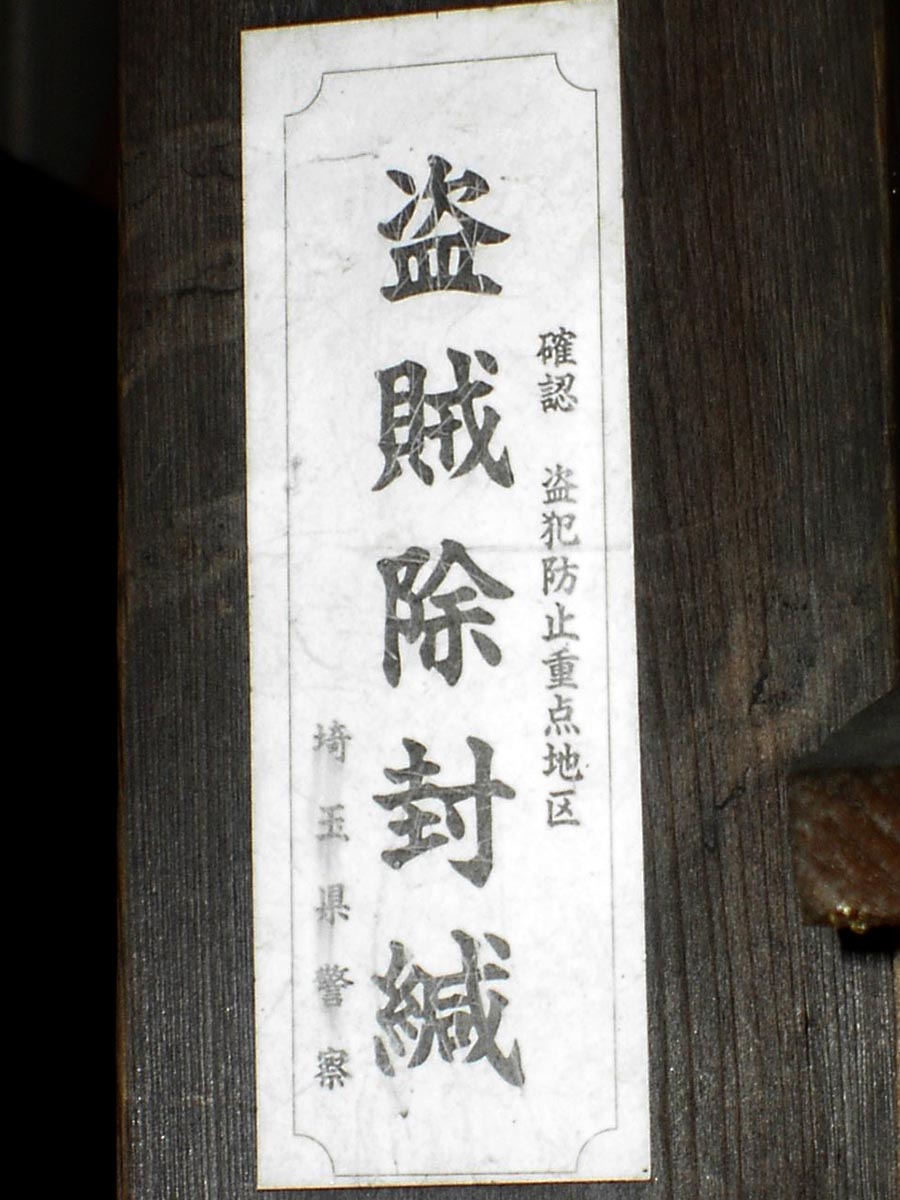 確認 盗犯防止重点地区
盗賊除封緘
埼玉県警察